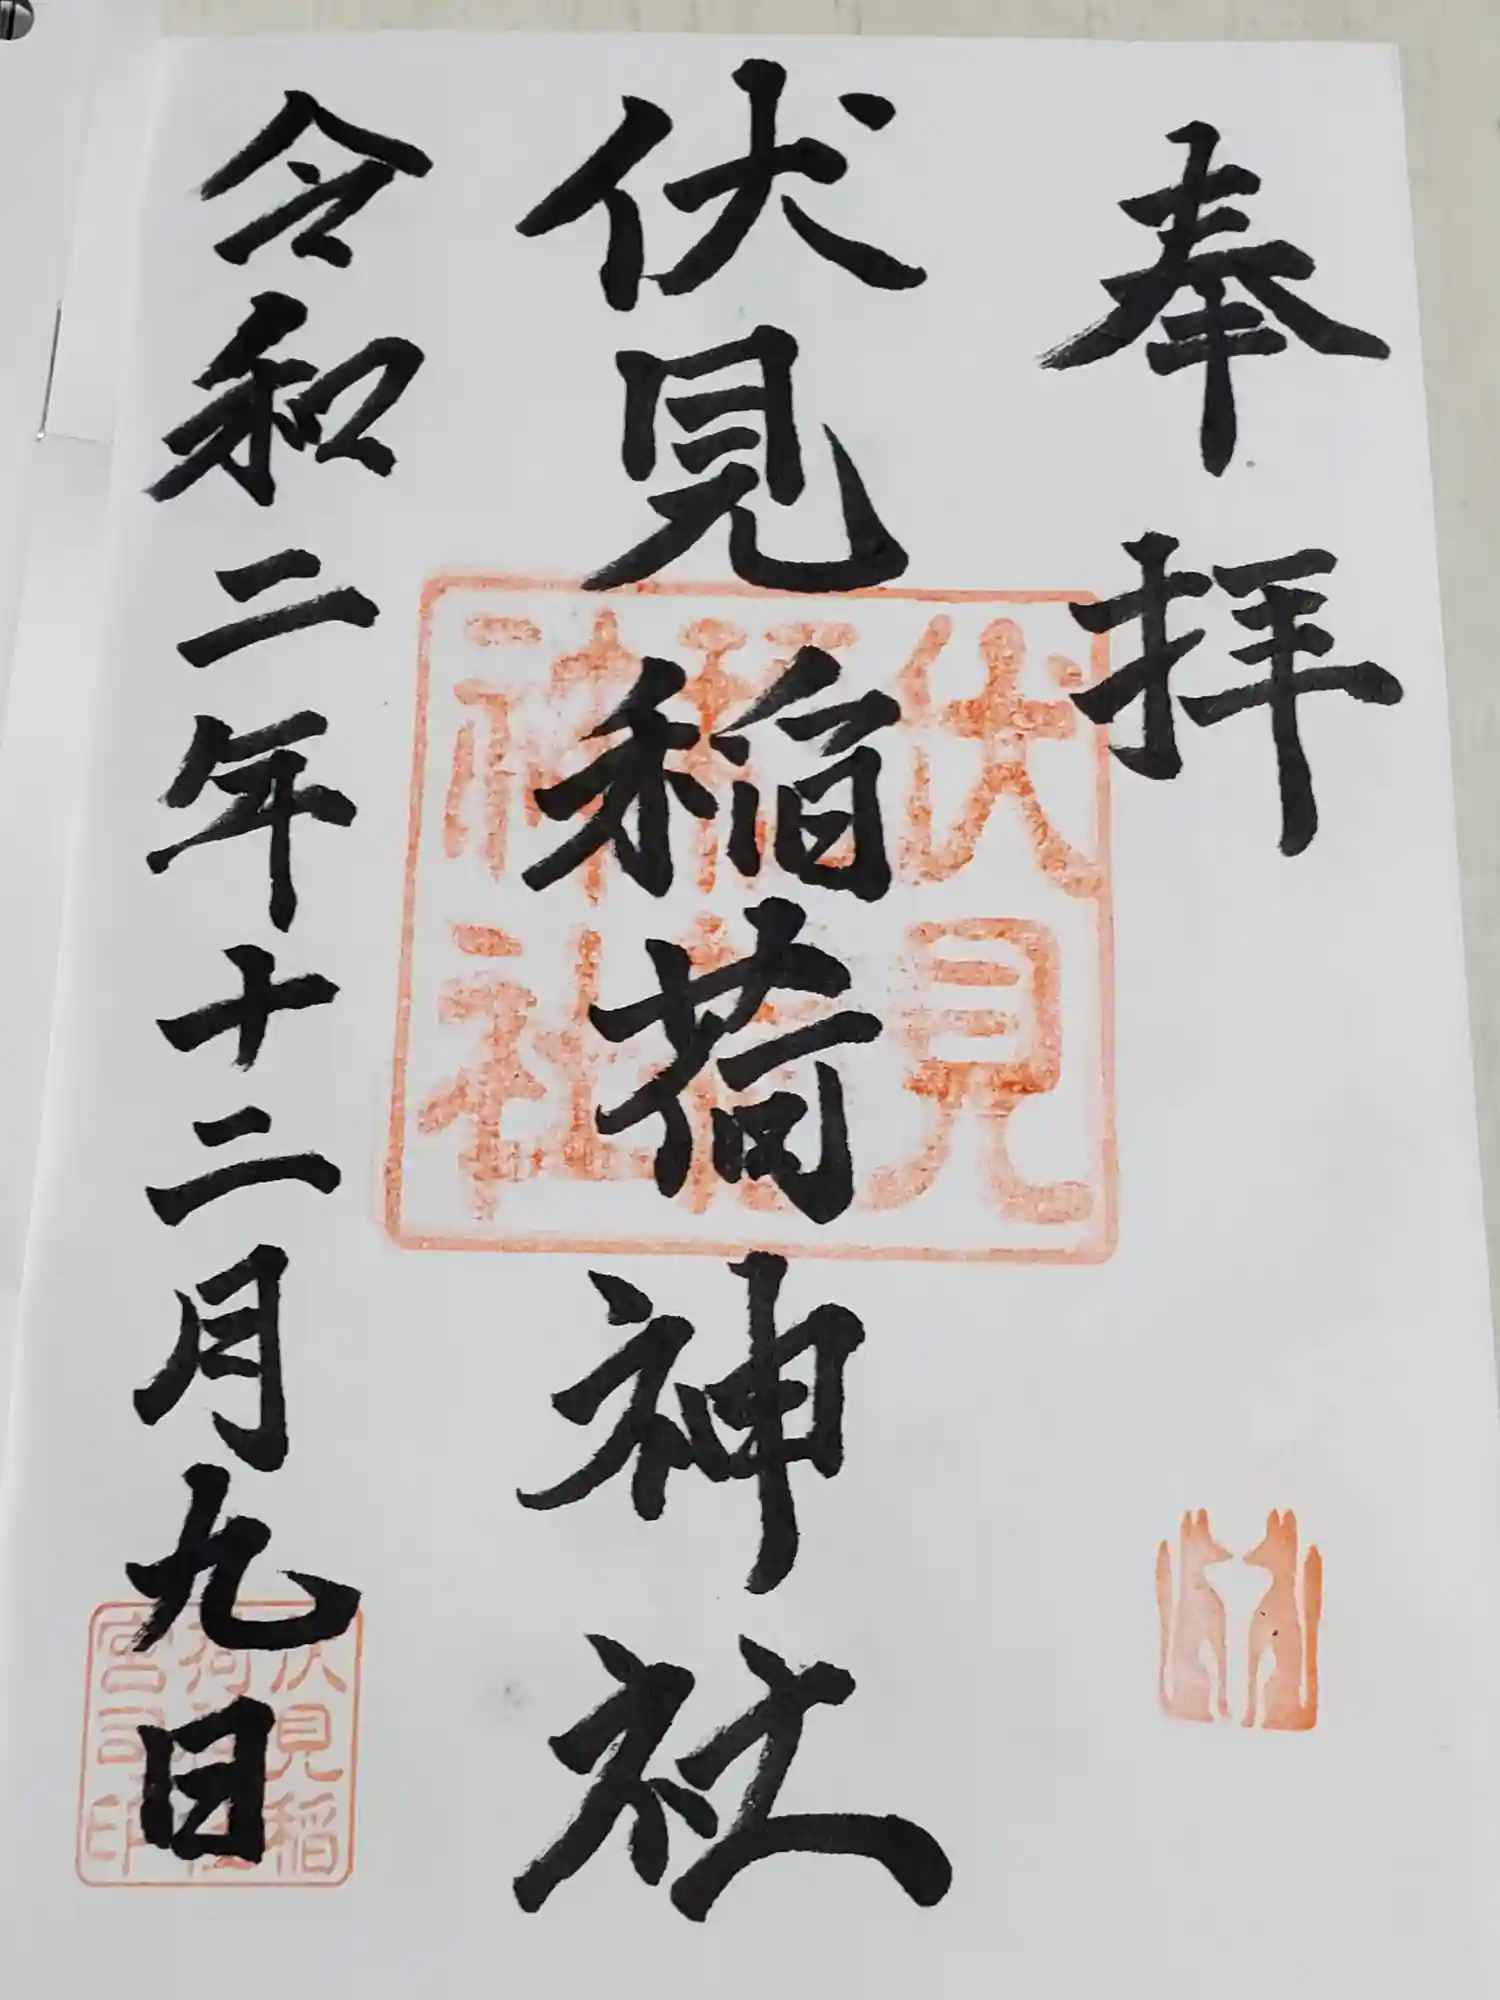 奉拝
伏見稲荷神社
令和二年十二月九日
伏見
稲荷
神社
伏見稲
荷神社
宮司印